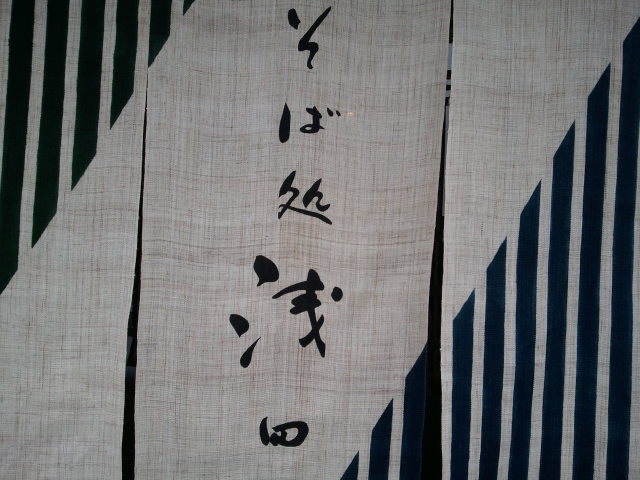 そば処浅田